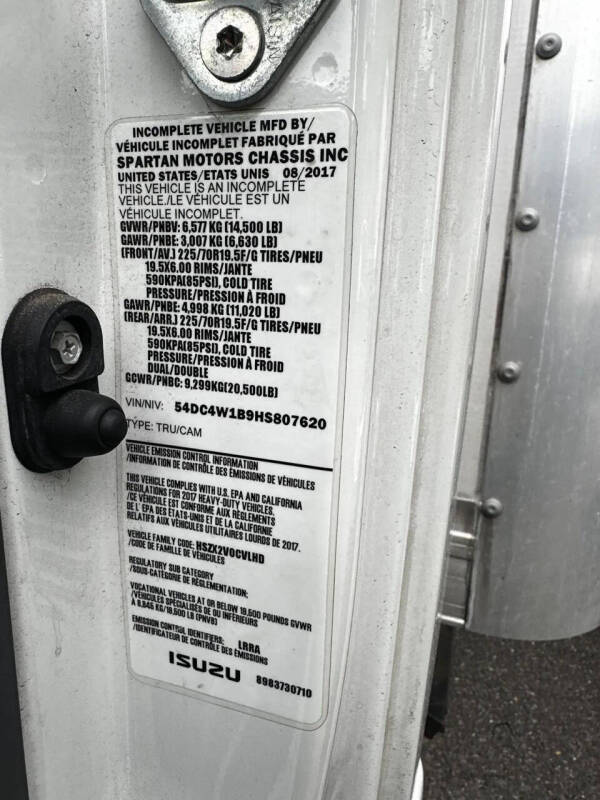 INCOMPLETE VEHICLE MFD BY/
VÉHICULE INCOMPLET FABRIQUÉ PAR
SPARTAN MOTORS CHASSIS INC
UNITED STATES/ETATS UNIS 08/2017
THIS VEHICLE IS AN INCOMPLETE
VEHICLE./LE VÉHICULE EST UN
VÉHICULE INCOMPLET.
GVWR/PNBV: 6,577 KG (14,500 LB)
GAWR/PNBE: 3,007 KG (6,630 LB)
(FRONT/AV.) 225/70R19.5F/G TIRES/PNEU
19.5X6.00 RIMS/JANTE
590KPA(85PSI), COLD TIRE
PRESSURE/PRESSION À FROID
GAWR/PNBE: 4,998 KG (11,020 LB)
(REAR/ARR.) 225/70R19.5F/G TIRES/PNEU
19.5X6.00 RIMS/JANTE
590KPA(85PSI), COLD TIRE
PRESSURE/PRESSION À FROID
DUAL/DOUBLE
GCWR/PNBC: 9,299KG(20,500LB)
VIN/NIV: 54DC4W1B9HS807620
TYPE: TRU/CAM
VEHICLE EMISSION CONTROL INFORMATION
/INFORMATION DE CONTRÔLE DES ÉMISSIONS DE VÉHICULES
THIS VEHICLE COMPLIES WITH U.S. EPA AND CALIFORNIA
REGULATIONS FOR 2017 HEAVY-DUTY VEHICLES.
/CE VÉHICULE EST CONFORME AUX RÈGLEMENTS
DE L' EPA DES ÉTATS-UNIS ET DE LA CALIFORNIE
RELATIFS AUX VÉHICULES UTILITAIRES LOURDS DE 2017.
VEHICLE FAMILY CODE: HSZX2VOCVLHD
/CODE DE FAMILLE DE VÉHICULES
REGULATORY SUB CATEGORY
/SOUS-CATÉGORIE DE RÉGLEMENTATION:
VOCATIONAL VEHICLES AT OR BELOW 19,500 POUNDS GVWR
/VÉHICULES SPÉCIALISÉS DE OU INFÉRIEURS
À 8,845 KG/19,500 LB (PNVB)
EMISSION CONTROL IDENTIFIERS: LRRA
/IDENTIFICATEUR DE CONTRÔLE DES ÉMISSIONS
ISUZU 8983730710